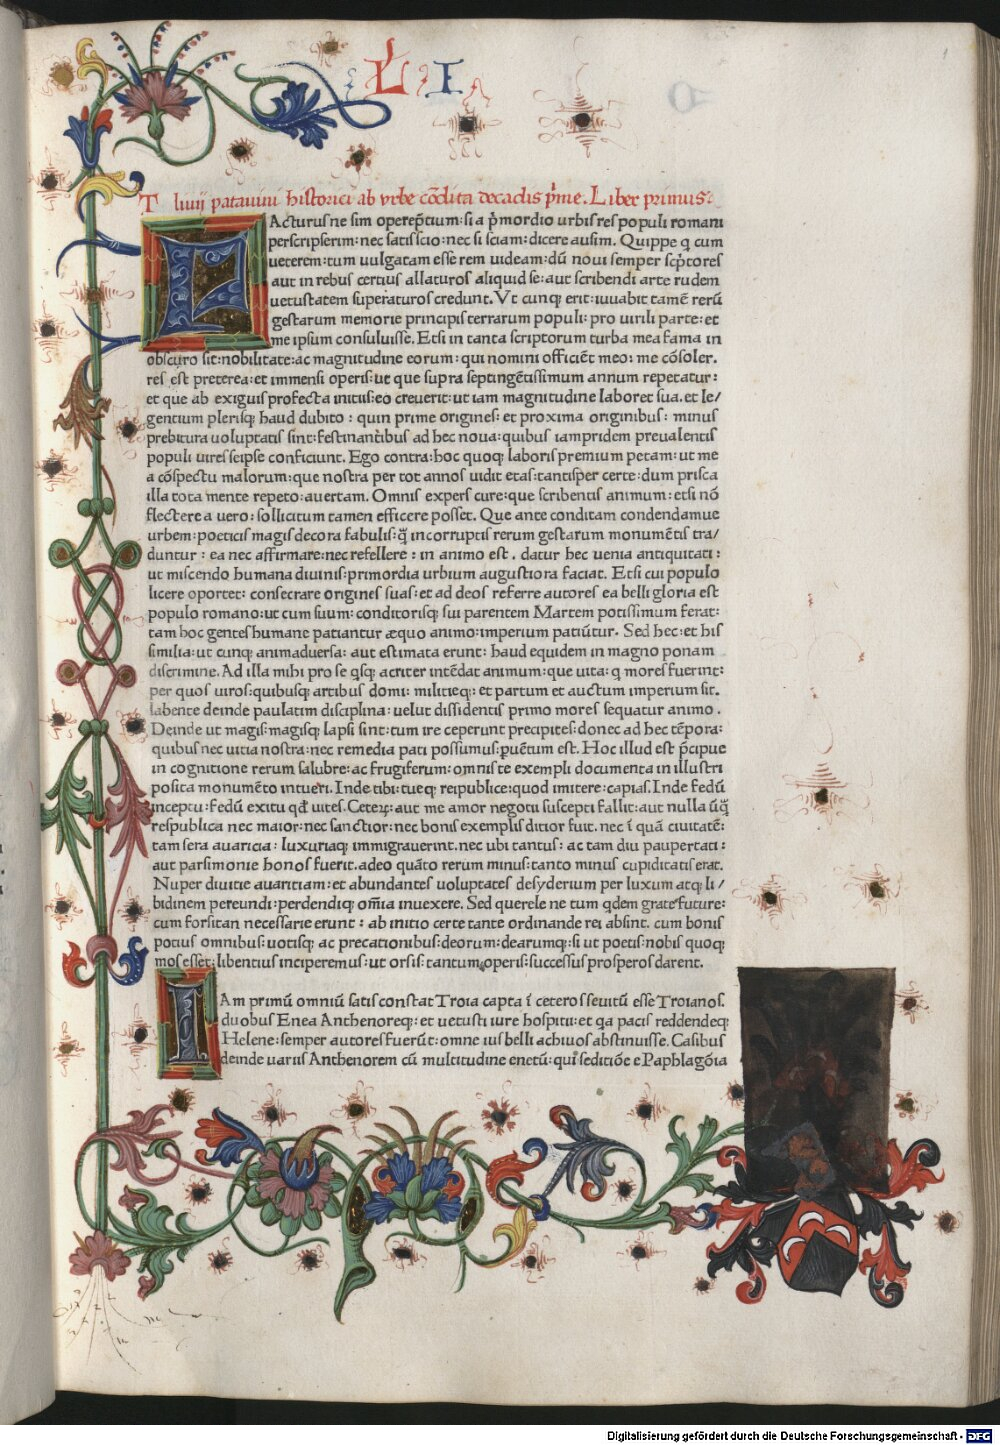 L I
T livij patavini historici ab vrbe cõdita decadis p̃me. Liber primus:
FActurus ne sim operep̃tium: si a p̃mordio urbis res populi romani
perscripserim: nec satis scio: nec si sciam: dicere ausim. Quippe q cum
ueterem: tum uulgatam esse rem uideam: dũ novi semper scp̃tores
aut in rebus certius allaturos aliquid se: aut scribendi arte rudem
uetustatem superaturos credunt. Vt cunq; erit: iuuabit tamẽ rerũ
gestarum memorie principis terrarum populi: pro uirili parte: et
me ipsum consuluisse. Et si in tanta scriptorum turba mea fama in
obscuro sit: nobilitate: ac magnitudine eorum: qui nomini officiẽt meo: me cõsoler.
res est preterea: et immensi operis: ut que supra septingẽtissimum annum repetatur:
et que ab exiguis profecta initiis: eo creuerit: ut iam magnitudine laboret sua. et le/
gentium plerisq; haud dubito: quin prime origines: et proxima originibus: minus
prebitura uoluptatis sint: festinantibus ad hec noua: quibus iampridem preualentis
populi uires seipse conficiunt. Ego contra: hoc quoq; laboris premium petam: ut me
a cõspectu malorum: que nostra per tot annos uidit etas: tantisper certe: dum prisca
illa tota mente repeto: auertam. Omnis expers cure: que scribentis animum: etsi nõ
flectere a uero: sollicitum tamen efficere posset. Que ante conditam condendamue
urbem: poeticis magis decora fabulis: q̃ incorruptis rerum gestarum monumẽtis tra/
duntur: ea nec affirmare: nec refellere: in animo est. datur hec uenia antiquitati:
ut miscendo humana diuinis: primordia urbium augustiora faciat. Et si cui populo
licere oportet: consecrare origines suas: et ad deos referre autores ea belli gloria est
populo romano: ut cum suum: conditorisq; sui parentem Martem potissimum ferat:
tam hoc gentes humane patiantur æquo animo: imperium patiũtur. Sed hec: et his
similia: ut cunq; animaduersa: aut estimata erunt: haud equidem in magno ponam
discrimine. Ad illa mihi pro se q̃sq; acriter intẽdat animum: que uita: q mores fuerint:
per quos uiros: quibusq; artibus domi: militieq;: et partum et auctum imperium sit.
labente deinde paulatim disciplina: uelut dissidentis primo mores sequatur animo.
Deinde ut magis: magisq; lapsi sint: tum ire ceperunt precipites: donec ad hec tẽpora:
quibus nec uitia nostra: nec remedia pati possumus: puẽtum est. Hoc illud est p̃cipue
in cognitione rerum salubre: ac frugiferum: omnis te exempli documenta in illustri
posita monumẽto intueri. Inde tibi: tueq; reipublice: quod imitere: capias. Inde fedũ
inceptu: fedũ exitu qď uites. Ceteꝝ: aut me amor negotii suscepti fallit: aut nulla ũq̃
respublica nec maior: nec sanctior: nec bonis exemplis ditior fuit. nec ĩ quã ciuitatẽ:
tam sera auaricia: luxuriaq; immigrauerint. nec ubi tantus: ac tam diu paupertati:
aut parsimonie honos fuerit. adeo quãto rerum minus: tanto minus cupiditatis erat.
Nuper diuitie auaritiam: et abundantes voluptates desyderium per luxum atq; li/
bidinem pereundi: perdendiq; om̃ia inuexere. Sed querele ne tum qdem grate future:
cum forsitan necessarie erunt: ab initio certe tante ordinande rei absint. cum bonis
potius omnibus: uotisq; ac precationibus: deorum: dearumq;: si ut poetis: nobis quoq;
mos esset: libentius inciperemus: ut orsis: tantum operis: successus prosperos darent.
IAm primũ omniũ satis constat Troia capta ĩ ceteros seuitũ esse Troianos.
duobus Enea Anthenoreq;: et uetusti iure hospitii: et qa pacis reddendeq;
Helene: semper autores fuerũt: omne ius belli achiuos abstinuisse. Casibus
deinde uariis Anthenorem cũ multitudine enetũ: qui seditiõe e Paphlagõia
Digitalisierung gefördert durch die Deutsche Forschungsgemeinschaft - DFG